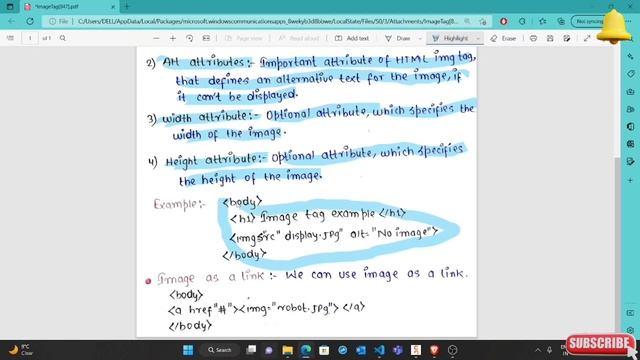 *ImageTag[947].pdf
File | C:/Users/DELL/AppData/Local/Packages/microsoft.windowscommunicationsapps_8wekyb3d8bbwe/LocalState/Files/S0/3/Attachments/ImageTag[8...
Not syncing
1 of 1
Highlight
2) Alt attributes:- Important attribute of HTML img tag,
that defines an alternative text for the image, if
it can't be displayed.
3) Width attribute:- Optional attribute, which specifies the
width of the image.
4) Height attribute:- Optional attribute, which specifies
the height of the image.
Example:- <body>
<h1> Image tag example </h1>
<img src" display.jpg" alt="No image">
</body>
Image as a link:- We can use image as a link.
<body>
<a href"#"><img="robot.jpg"> </a>
</body>
8°C
Clear
SUBSCRIBE